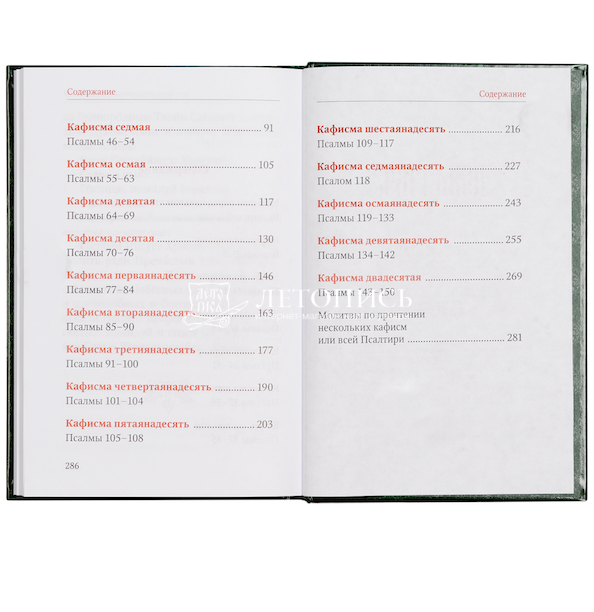 Содержание
Кафисма седмая 91
Псалмы 46–54
Кафисма осмая 105
Псалмы 55–63
Кафисма девятая 117
Псалмы 64–69
Кафисма десятая 130
Псалмы 70–76
Кафисма перваянадесять 146
Псалмы 77–84
Кафисма втораянадесять 163
Псалмы 85–90
Кафисма третиянадесять 177
Псалмы 91–100
Кафисма четвертаянадесять 190
Псалмы 101–104
Кафисма пятаянадесять 203
Псалмы 105–108
286
Содержание
Кафисма шестаянадесять 216
Псалмы 109–117
Кафисма седмаянадесять 227
Псалом 118
Кафисма осмаянадесять 243
Псалмы 119–133
Кафисма девятаянадесять 255
Псалмы 134–142
Кафисма двадесятая 269
Псалмы 143–150
Молитвы по прочтении
нескольких кафисм
или всей Псалтири 281
ЛЕТОПИСЬ